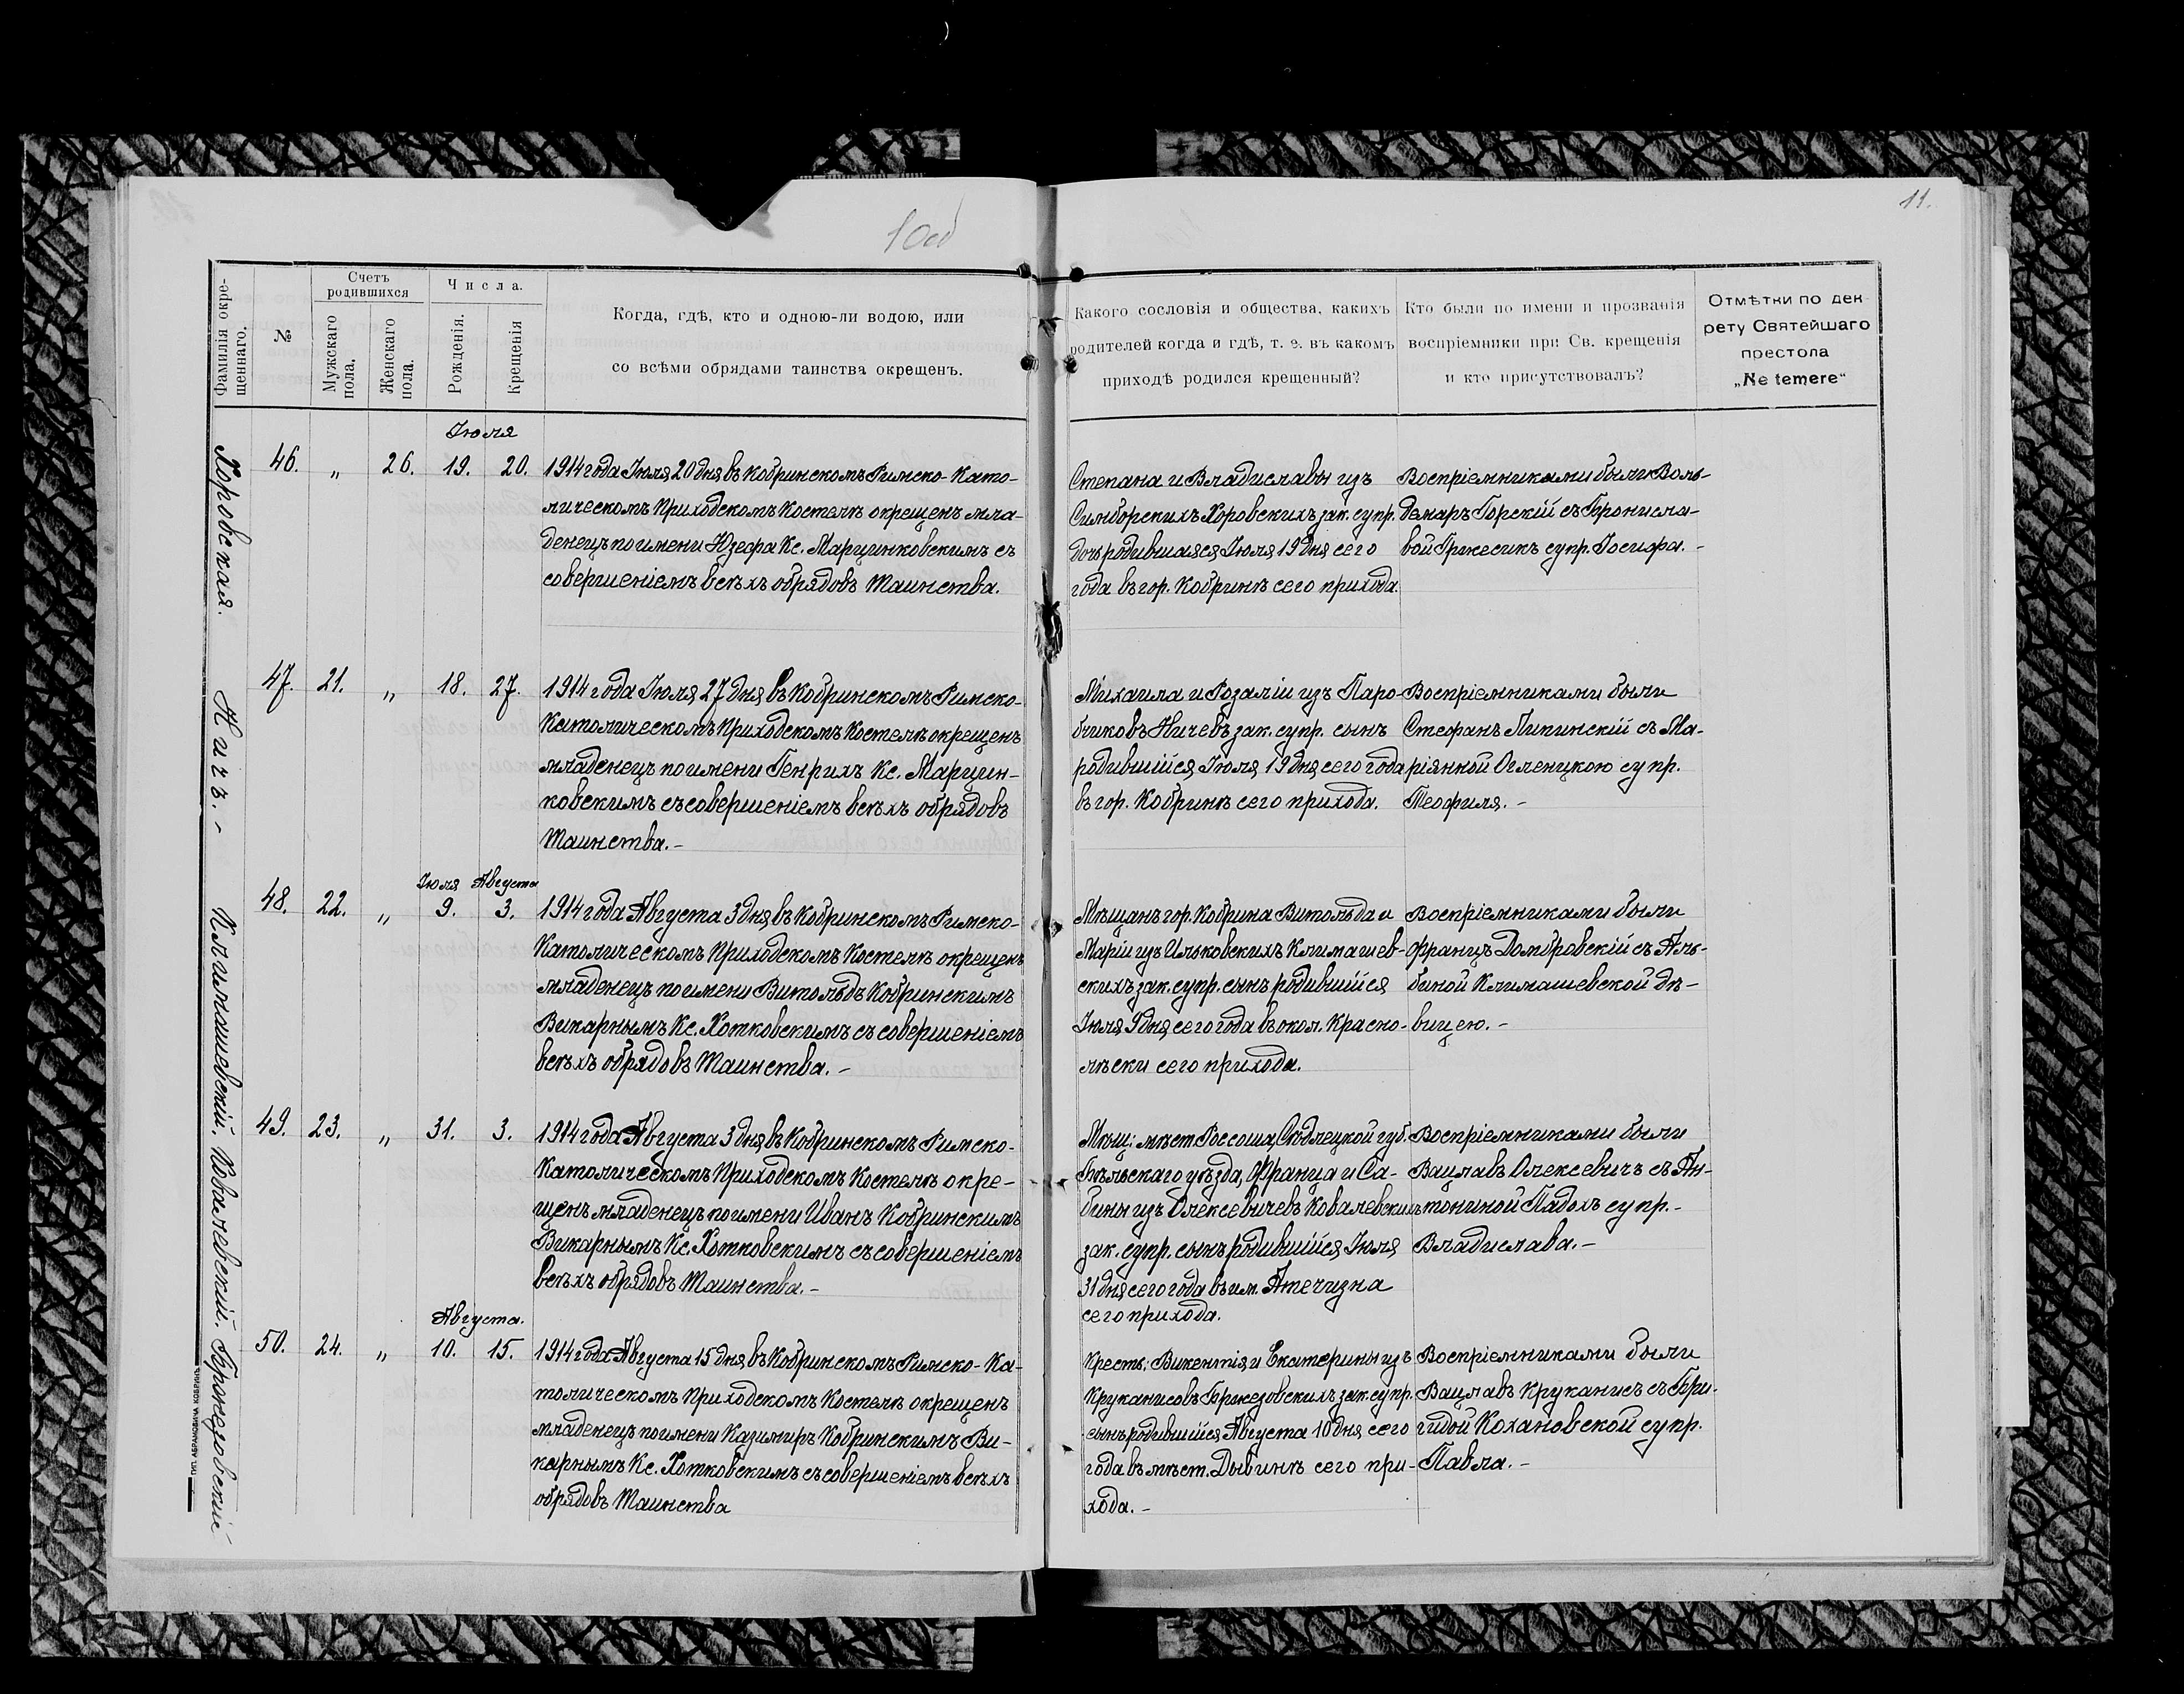 10 об
11.
Фамилія окре-
щеннаго.
№
Счетъ
родившихся
Мужскаго
пола.
Женскаго
пола.
Числа.
Рожденія.
Крещенія
Когда, гдѣ, кто и одною-ли водою, или
со всѣми обрядами таинства окрещенъ.
Какого сословія и общества, какихъ
родителей когда и гдѣ, т. е. въ какомъ
приходѣ родился крещенный?
Кто были по имени и прозванія
воспріемники при Св. крещенія
и кто присутствовалъ?
Отмѣтки по дек-
рету Святейшаго
престола
„Ne temere“
Хоровская.
Іюля
46. „ 26. 19. 20.
1914 года Іюля 20 дня въ Кобринскомъ Римско-Като-
лическомъ Приходскомъ Костелѣ окрещенъ мла-
денецъ по имени Юзефа Кс. Марцинковскимъ съ
совершеніемъ всѣхъ обрядовъ Таинства.
Степана и Владиславы изъ
Симборскихъ Хоровскихъ зак. супр.
дочь родившаяся Іюля 19 дня сего
года въ гор. Кобринѣ сего прихода.
Воспріемниками были Воль-
демаръ Горскій съ Бронисла-
вой Гржесикъ супр. Іосифа. -
Ничъ. -
47. 21. „ 18. 27.
1914 года Іюля 27 дня въ Кобринскомъ Римско-
Католическомъ Приходскомъ Костелѣ окрещенъ
младенецъ по имени Генрихъ Кс. Марцин-
ковскимъ съ совершеніемъ всѣхъ обрядовъ
Таинства. -
Михаила и Розаліи изъ Паро-
бчиковъ Ничевъ зак. супр. сынъ
родившійся Іюля 19 дня сего года
въ гор. Кобринѣ сего прихода.
Воспріемниками были
Стефанъ Липинскій съ Ма-
ріянной Огленцкою супр.
Теофиля. -
Климашевскій.
Іюля Августа
48. 22. „ 9. 3.
1914 года Августа 3 дня въ Кобринскомъ Римско-
Католическомъ Приходскомъ Костелѣ окрещенъ
младенецъ по имени Витольдъ Кобринскимъ
Викарнымъ Кс. Хотковскимъ съ совершеніемъ
всѣхъ обрядовъ Таинства. -
Мѣщанъ гор. Кобрина Витольда и
Маріи изъ Ильковскихъ Климашев-
скихъ зак. супр. сынъ родившійся
Іюля 9 дня сего года въ окол. Красно-
лѣски сего прихода.
Воспріемниками были
Францъ Домбровскій съ Аль-
биной Климашевской дѣ-
вицею. -
Ковалевскій.
49. 23. „ 31. 3.
1914 года Августа 3 дня въ Кобринскомъ Римско-
Католическомъ Приходскомъ Костелѣ окре-
щенъ младенецъ по имени Иванъ Кобринскимъ
Викарнымъ Кс. Хотковскимъ съ совершеніемъ
всѣхъ обрядовъ Таинства. -
Мѣщ: мѣст. Россошь, Сѣдлецкой губ.
Бѣльскаго уѣзда, Франца и Са-
бины изъ Олексевичевъ Ковалевскихъ
зак. супр. сынъ родившійся Іюля
31 дня сего года въ им. Атечизна
сего прихода.
Воспріемниками были
Вацлавъ Олексевичъ съ Ан-
тониной Падохъ супр. -
Владислава. -
Бржезовскій
Августа.
50. 24. „ 10. 15.
1914 года Августа 15 дня въ Кобринскомъ Римско-Ка-
толическомъ Приходскомъ Костелѣ окрещенъ
младенецъ по имени Казимиръ Кобринскимъ Ви-
карнымъ Кс. Хотковскимъ съ совершеніемъ всѣхъ
обрядовъ Таинства
Крест: Викентія и Екатерины изъ
Круканисовъ Бржезовскихъ зак. супр.
сынъ родившійся Августа 10 дня сего
года въ мѣст. Дывинѣ сего при-
хода. -
Воспріемниками были
Вацлавъ Круканисъ съ Бри-
гидой Кохановской супр.
Павла. -
ТИП. АБРАМОВИЧА КОБРИНЪ.